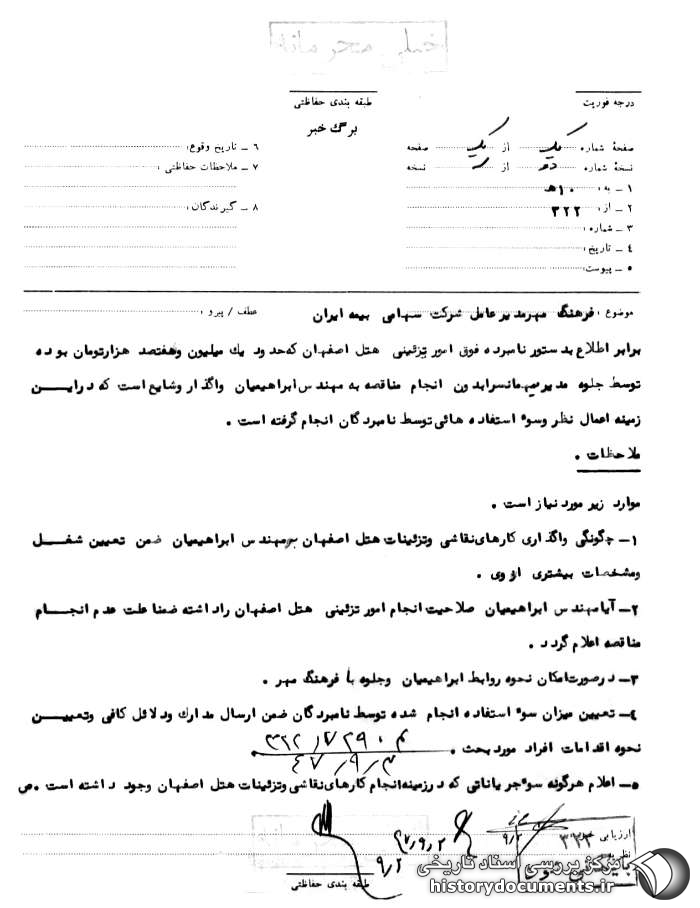 خیلی محرمانه
درجه فوریت
طبقه بندی حفاظتی
برگ خبر
صفحهٔ شماره یک از یک صفحه
نسخهٔ شماره دو از نسخه
۱ ـ به: ۱۰هـ
۲ ـ از: ۳۲۲
۳ ـ شماره:
۴ ـ تاریخ:
۵ ـ پیوست:
۶ ـ تاریخ وقوع:
۷ ـ ملاحظات حفاظتی:
۸ ـ گیرندگان:
موضوع: فرهنگ مهرمدیرعامل شرکت سهامی بیمه ایران
عطف / پیرو:
برابر اطلاع بدستور نامبرده فوق امور تزئینی هتل اصفهان که حدود یك میلیون وهفتصد هزارتومان بوده
توسط جلوه مدیرمهمانسرابدون انجام مناقصه به مهندس ابراهیمیان واگذار وشایع است که دراین
زمینه اعمال نظر وسوء استفاده هائی توسط نامبردگان انجام گرفته است .
ملاحظات .
موارد زیر مورد نیاز است .
۱ـ چگونگی واگذاری کارهای نقاشی وتزئینات هتل اصفهان بمهندس ابراهیمیان ضمن تعیین شغل
ومشخصات بیشتری از وی .
۲ـ آیامهندس ابراهیمیان صلاحیت انجام امور تزئینی هتل اصفهان راداشته ضمنا علت عدم انجام
مناقصه اعلام گردد .
۳ـ درصورت امکان نحوه روابط ابراهیمیان وجلوه با فرهنگ مهر .
۴ـ تعیین میزان سوء استفاده انجام شده توسط نامبردگان ضمن ارسال مدارك ودلائل کافی وتعیین
نحوه اقدامات افراد مورد بحث .
۵ـ اعلام هرگونه سوء جریاناتی که درزمینه انجام کارهای نقاشی وتزئینات هتل اصفهان وجود داشته است .ص
ارزیابی خبر
۳۲۲
۴۷/۹/۲
۹/۲
۹/۲
طبقه بندی حفاظتی
مرکز بررسی اسناد تاریخی
historydocuments.ir